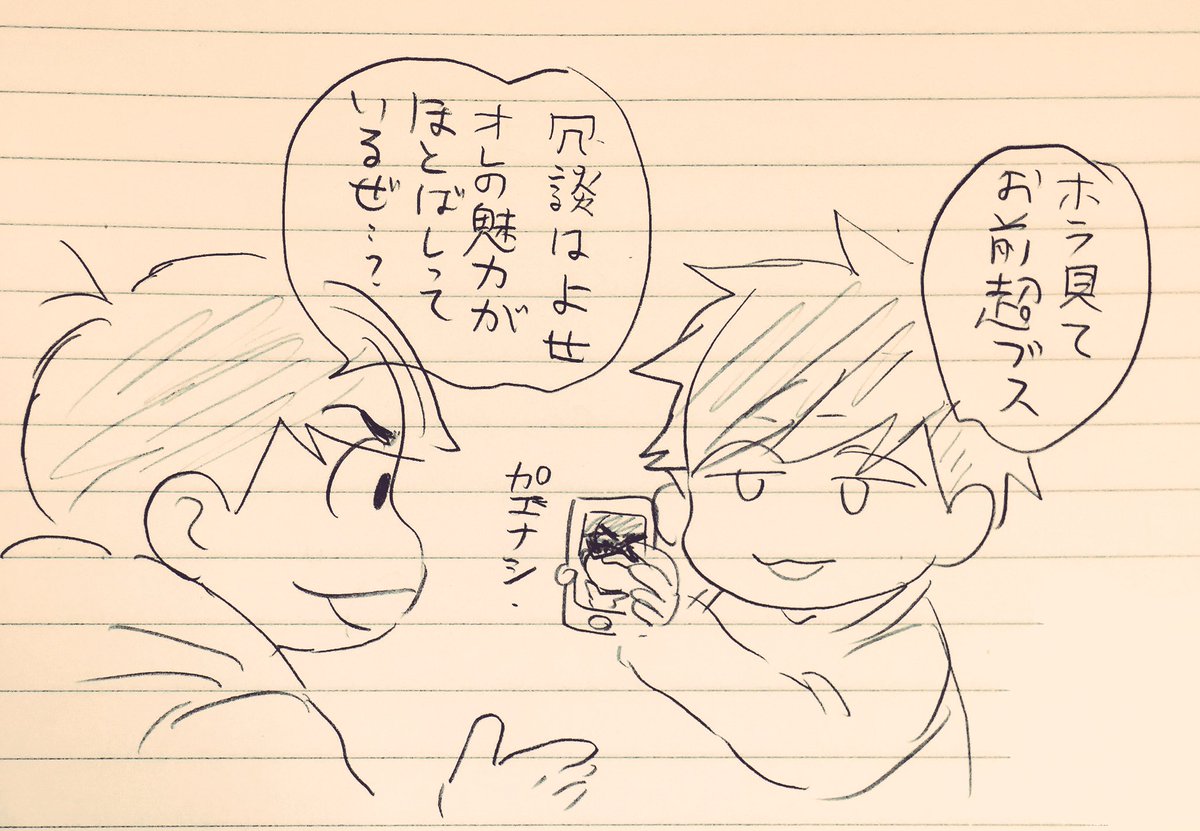 ホラ見て
お前超ブス
冗談はよせ
オレの魅力が
ほとばしって
いるぜ…?
加工ナシ.